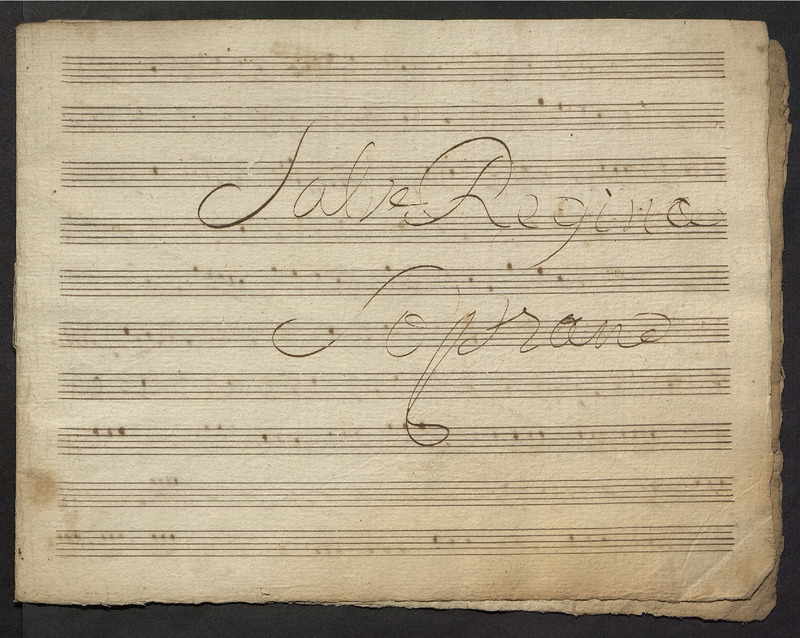 Salve Regina
Soprano